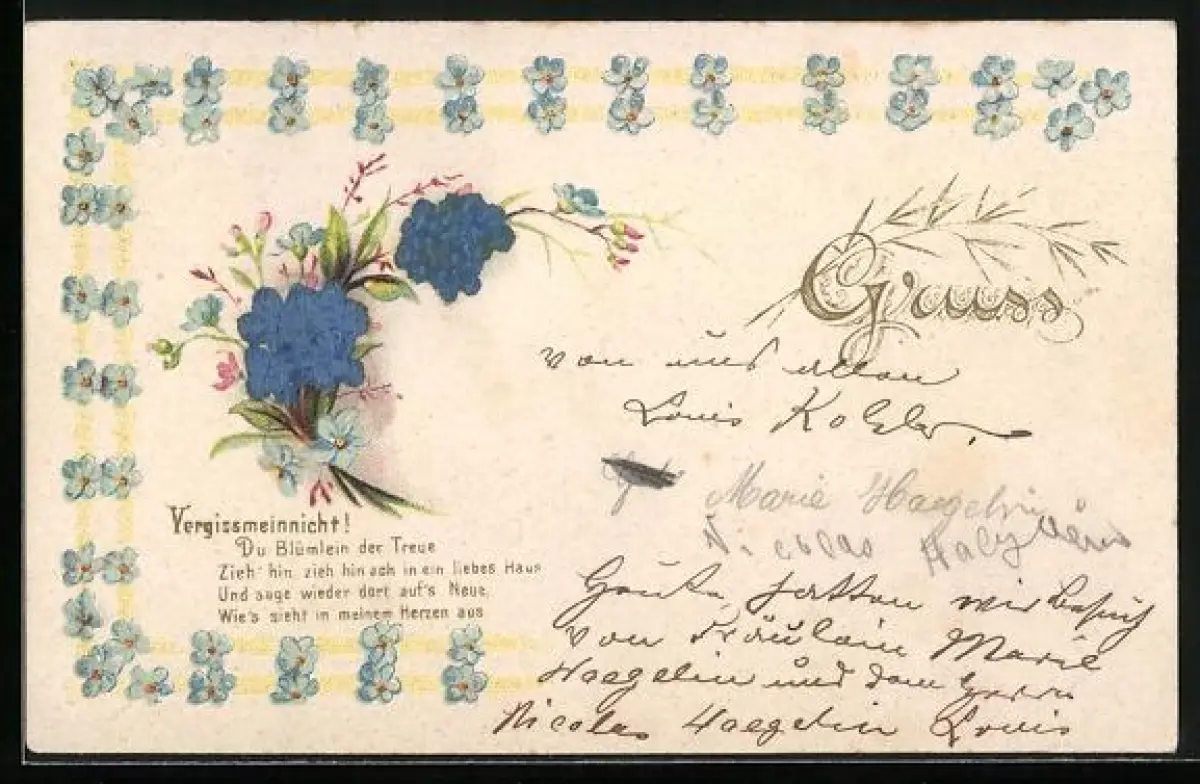 Gruss
von uns allen
Louis Kohler
Marie Haegelin
Nicolas Haegelin
Vergissmeinnicht!
Du Blümlein der Treue
Zieh' hin, zieh hin ach in ein liebes Haus
Und sage wieder dort auf's Neue,
Wie's sieht in meinem Herzen aus
Heute hatten wir Besuch
von Fräulein Marie
Haegelin und dem Herrn
Nicolas Haegelin Louis